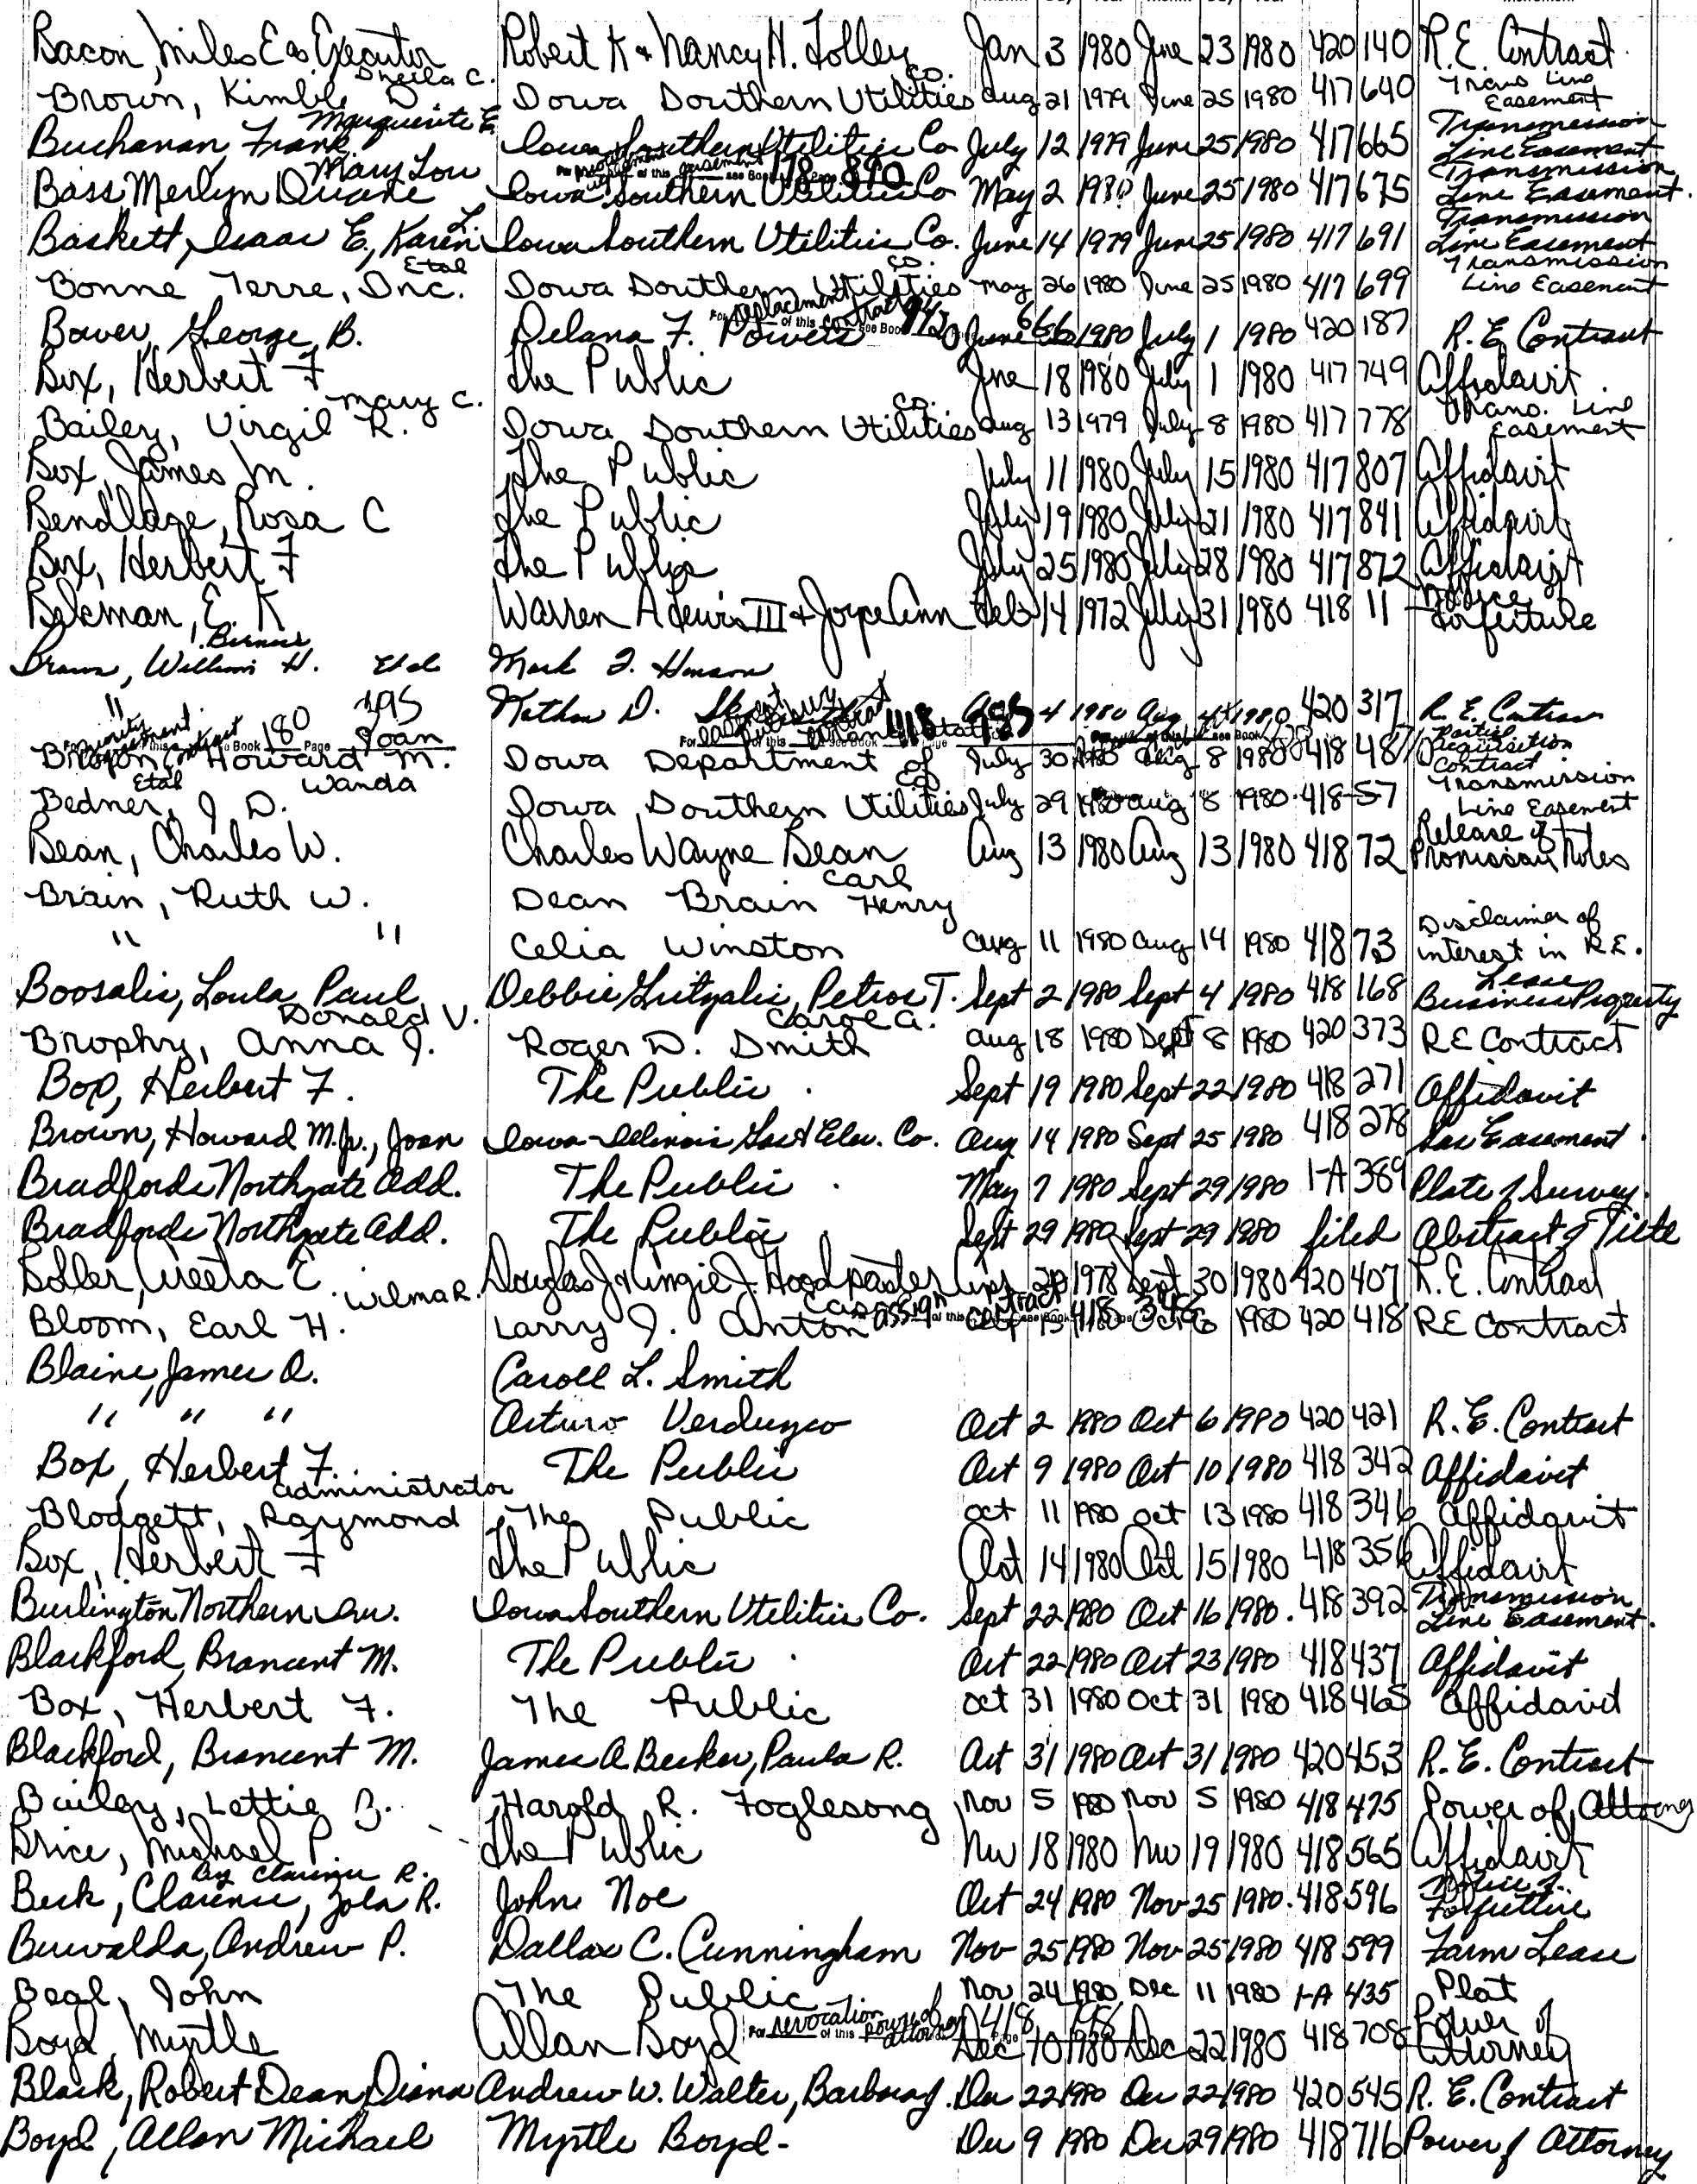 Bacon, Miles E as Executor Robert K + Nancy H. Tolley Jan 3 1980 June 23 1980 420 140 R.E. Contract
Brown, Kimble D Sheila C. Iowa Southern Utilities Co. Aug 21 1979 June 25 1980 417 640 Trans Line Easement
Buchanan Frank Marguerite E Iowa Southern Utilities Co July 12 1979 June 25 1980 417 665 Transmission Line Easement
Bass Merlyn Duane Mary Lou Iowa Southern Utilities Co May 2 1980 June 25 1980 417 675 Transmission Line Easement.
of this easement see Book 178 Page 890
Baskett, Isaac E., Karen L. Iowa Southern Utilities Co. June 14 1979 June 25 1980 417 691 Transmission Line Easement
Bonne Terre, Inc. Etal Iowa Southern Utilities Co. May 26 1980 June 25 1980 417 699 Transmission Line Easement
For replacement of this contract see Book
Bower, George B. Delana F. Powers June 1980 July 1 1980 420 187 R.E. Contract
Box, Herbert F The Public Jne 18 1980 July 1 1980 417 749 Affidavit
Bailey, Virgil R. Mary C. Iowa Southern Utilities Co. Aug 13 1979 July 8 1980 417 778 Trans. Line Easement
Box, James M. The Public July 11 1980 July 15 1980 417 807 Affidavit
Bendlage, Rosa C The Public July 19 1980 July 21 1980 417 841 Affidavit
Box, Herbert F The Public July 25 1980 July 28 1980 417 872 Affidavit
Bekman, E. K Warren A Lewis III + Joyce Ann Feb 14 1972 July 31 1980 418 11 Notice Forfeiture
William H. Etal Mark
" Nathan D. Aug 4 1980 Aug 1980 420 317 R. E. Contract
For of this Contract see Book 180 Page 395
Howard M. Joan Iowa Department of July 30 1980 Aug 8 1980 418 48 Partial Acquisition Contract
Bedner, J D. Etal Wanda Iowa Southern Utilities Co July 29 1980 Aug 8 1980 418 57 Transmission Line Easement
Bean, Charles W. Charles Wayne Bean Aug 13 1980 Aug 13 1980 418 72 Release of Promissory Notes
Brain, Ruth W. Dean Brain Carl Henry
" " Celia Winston Aug 11 1980 Aug 14 1980 418 73 Disclaimer of interest in R.E.
Boosalis, Loula, Paul Debbie Gritzalis, Petros T. Sept 2 1980 Sept 4 1980 418 168 Lease Business Property
Brophy, Anna J. Donald V. Roger D. Smith Carol A. Aug 18 1980 Sept 8 1980 420 373 RE Contract
Box, Herbert F. The Public Sept 19 1980 Sept 22 1980 418 271 Affidavit
Brown, Howard M. Jr., Joan Iowa-Illinois Gas & Elec. Co. Aug 14 1980 Sept 25 1980 418 278 Gas Easement
Bradfords Northgate Add. The Public May 7 1980 Sept 29 1980 1-A 389 Plate & Survey
Bradfords Northgate Add. The Public Sept 29 1980 Sept 29 1980 filed Abstract of Title
Weeta E. Douglas J + Angie J. Hoodpaster 1978 Sept 30 1980 420 407 R.E. Contract
Bloom, Earl H. Wilma R. Larry J. Anton 1980 Oct 6 1980 420 418 RE Contract
assign of this contract see Book 418 Page 348
Blaine, James A. Caroll L. Smith
" " " Arturo Verduzco Oct 2 1980 Oct 6 1980 420 421 R.E. Contract
Box, Herbert F. The Public Oct 9 1980 Oct 10 1980 418 342 Affidavit
Blodgett, Raymond administrator The Public Oct 11 1980 Oct 13 1980 418 346 Affidavit
Box, Herbert F The Public Oct 14 1980 Oct 15 1980 418 356 Affidavit
Burlington Northern Inc. Iowa Southern Utilities Co. Sept 22 1980 Oct 16 1980. 418 392 Transmission Line Easement.
Blackford, Brancent M. The Public Oct 22 1980 Oct 23 1980 418 437 Affidavit
Box, Herbert F. The Public Oct 31 1980 Oct 31 1980 418 465 Affidavit
Blackford, Brancent M. James A. Becker, Paula R. Oct 31 1980 Oct 31 1980 420 453 R.E. Contract
Bailey, Lettie B. Harold R. Foglesong Nov 5 1980 Nov 5 1980 418 475 Power of Attorney
Brice, Michael P. The Public Nov 18 1980 Nov 19 1980 418 565 Affidavit
Beck, Clarence, Zola R. by Clarence R. John Noe Oct 24 1980 Nov 25 1980. 418 596 Notice of Forfeiture
Buwalda, Andrew P. Dallas C. Cunningham Nov 25 1980 Nov 25 1980 418 599 Farm Lease
Beal, John The Public Nov 24 1980 Dec 11 1980 1-A 435 Plat
For revocation of this power of attorney 418
Boyd, Myrtle Allan Boyd Dec 10 1980 Dec 22 1980 418 708 Power of Attorney
Black, Robert Dean, Diana Andrew W. Walter, Barbara J. Dec 22 1980 Dec 22 1980 420 545 R.E. Contract
Boyd, Allan Michael Myrtle Boyd- Dec 9 1980 Dec 29 1980 418 716 Power of Attorney